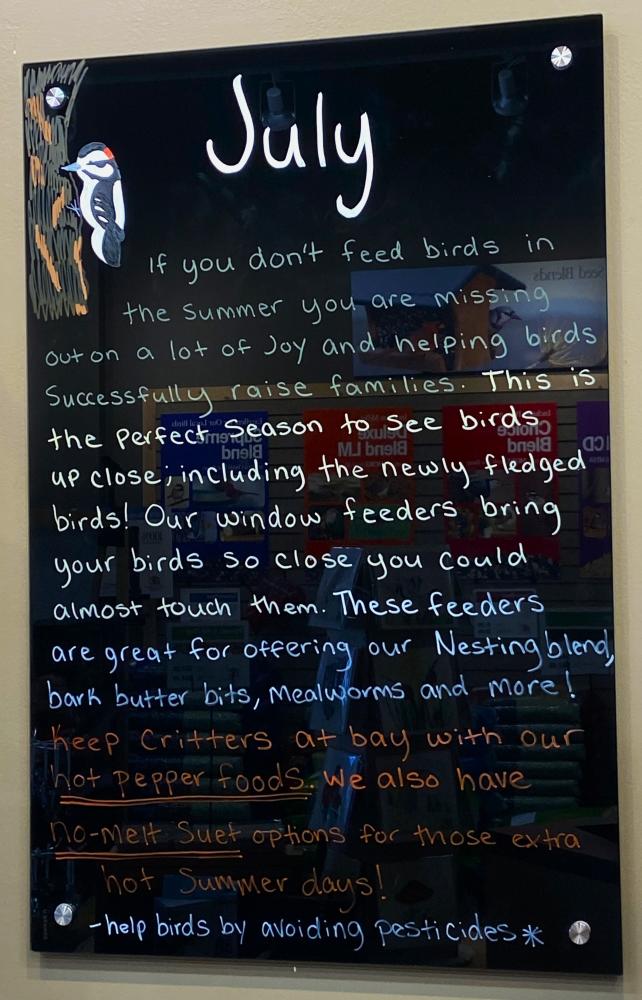 July
If you don't feed birds in
the summer you are missing
out on a lot of Joy and helping birds
Successfully raise families. This is
the perfect Season to See birds
up close; including the newly fledged
birds! Our window feeders bring
your birds so close you could
almost touch them. These feeders
are great for offering our Nesting blend,
bark butter bits, Mealworms and more!
Keep Critters at bay with our
hot pepper foods. We also have
no-melt Suet options for those extra
hot Summer days!
-help birds by avoiding pesticides*
Seed Blends
Supreme Blend
Deluxe Blend LM
Choice Blend